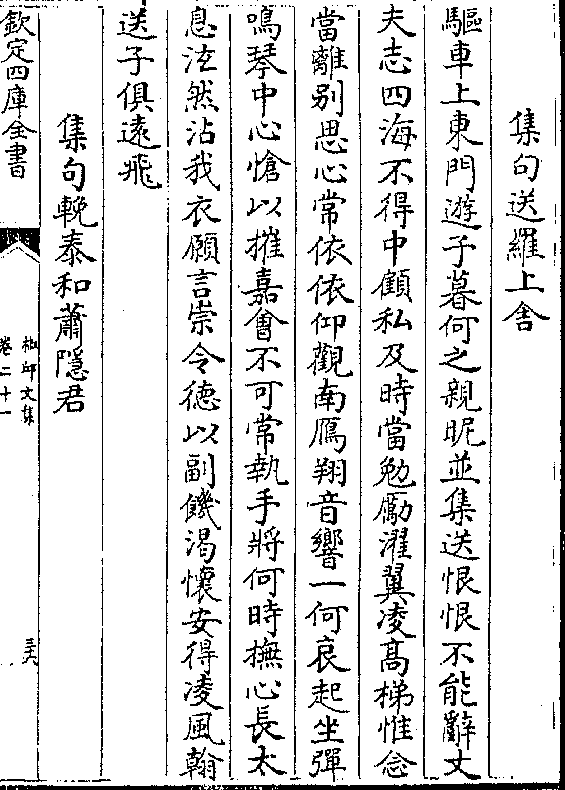 集句送羅上舍
驅車上東門遊子暮何之親昵並集送恨恨不能辭丈
夫志四海不得中顧私及時當勉勵濯翼凌高梯惟念
當離别思心常依依仰觀南鴈翔音響一何哀起坐彈
鳴琴中心愴以摧嘉會不可常執手將何時撫心長太
息泫然沾我衣願言崇令德以副饑渴懷安得凌風翰
送子俱遠飛
集句輓泰和蕭隱君
欽定四庫全書
文集
卷二十一